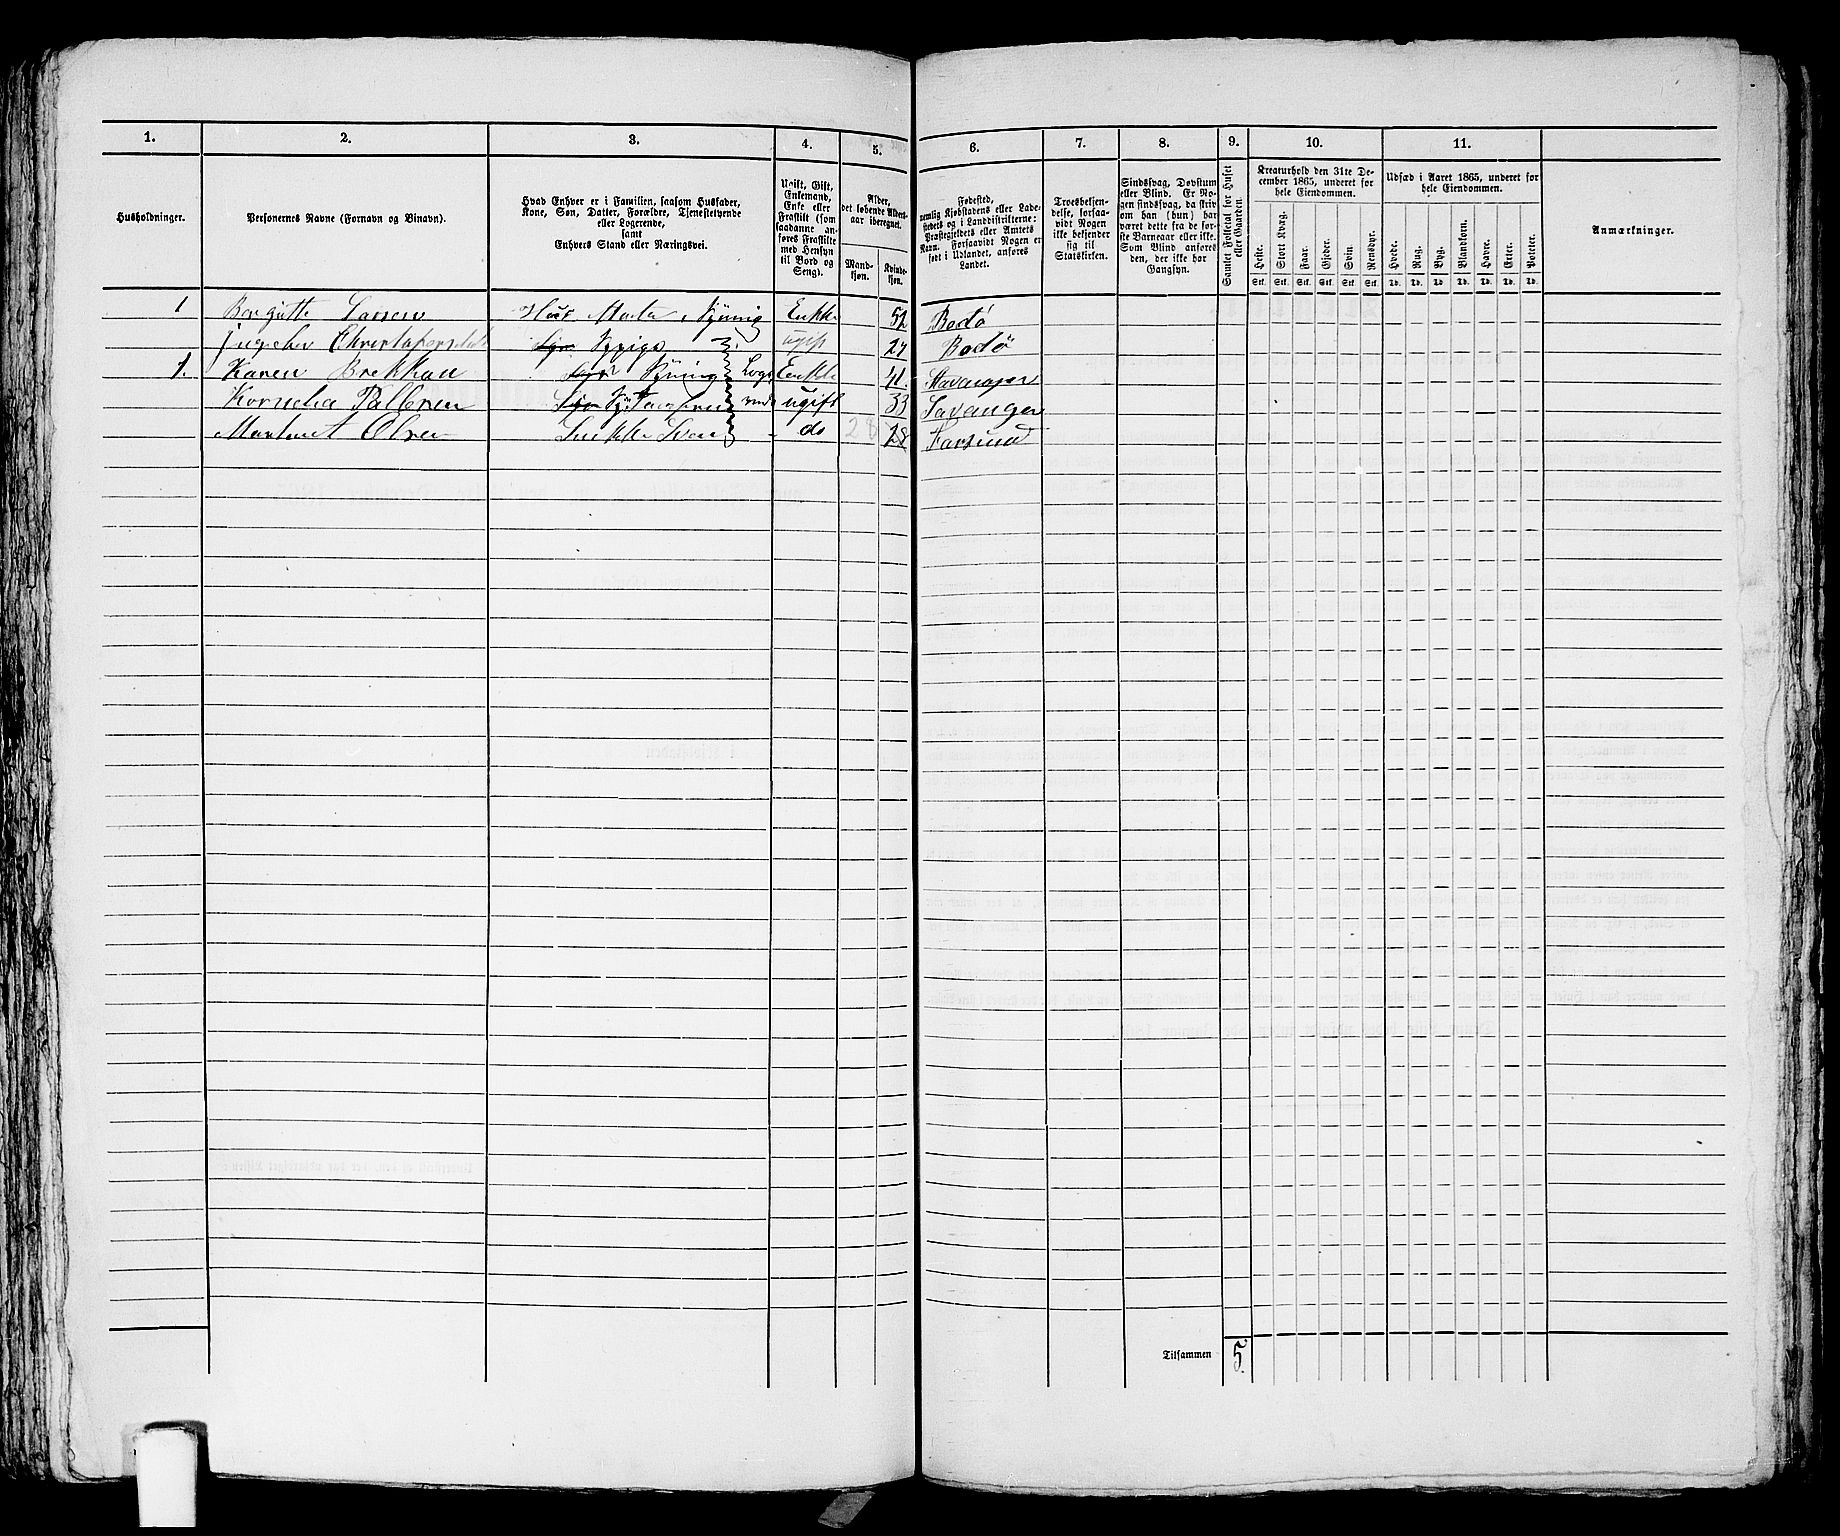 1. 2. 3. 4. 5. 6. 7. 8. 9. 10. 11.
Husholdninger.
Personernes Navne (Fornavn og Binavn).
Hvad Enhver er i Familien, saasom Husfader,
Kone, Søn, Datter, Forældre, Tjenestetyende
eller Logerende,
samt
Enhvers Stand eller Næringsvei.
Ugift, Gift,
Enkemand,
Enke eller
Fraskilt (som
saadanne an-
føres Fraskilte
med Hensyn
til Bord og
Seng).
Alder,
det løbende Alders-
aar iberegnet.
Mand-
kjøn.
Kvinde-
kjøn.
Fødested,
nemlig Kjøbstadens eller Lade-
stedets og i Landdistrikterne:
Præstegjeldets eller Amtets
Navn. Forsaavidt Nogen er
født i Udlandet, anføres
Landet.
Troesbekjen-
delse, forsaa-
vidt Nogen
ikke bekjender
sig til
Statskirken.
Sindssvag, Døvstum
eller Blind. Er No-
gen sindssvag, da skriv
om han (hun) har
været dette fra de før-
ste Barneaar eller ikke.
Som Blind anføres
den, der ikke har
Gangsyn.
Samlet Folketal for Huset
eller Gaarden.
Kreaturhold den 31te De-
cember 1865, underet for
hele Eiendommen.
Heste. Stort Kvæg. Faar. Gjeder. Svin. Rensdyr.
Stk. Stk. Stk. Stk. Stk. Stk.
Udsæd i Aaret 1865, underet for
hele Eiendommen.
Hvede. Rug. Byg. Blandkorn. Havre. Erter. Poteter.
Td. Td. Td. Td. Td. Td. Td.
Anmærkninger.
1 Larsen Enke 52 Bodø
ugift 27 Bodø
1. Karen Brekkan Syning Loge Enke 41. Stavanger
Kornelia rende ugift 33 Savanger
Olsen do 28 28 Farsund
Tilsammen 5.